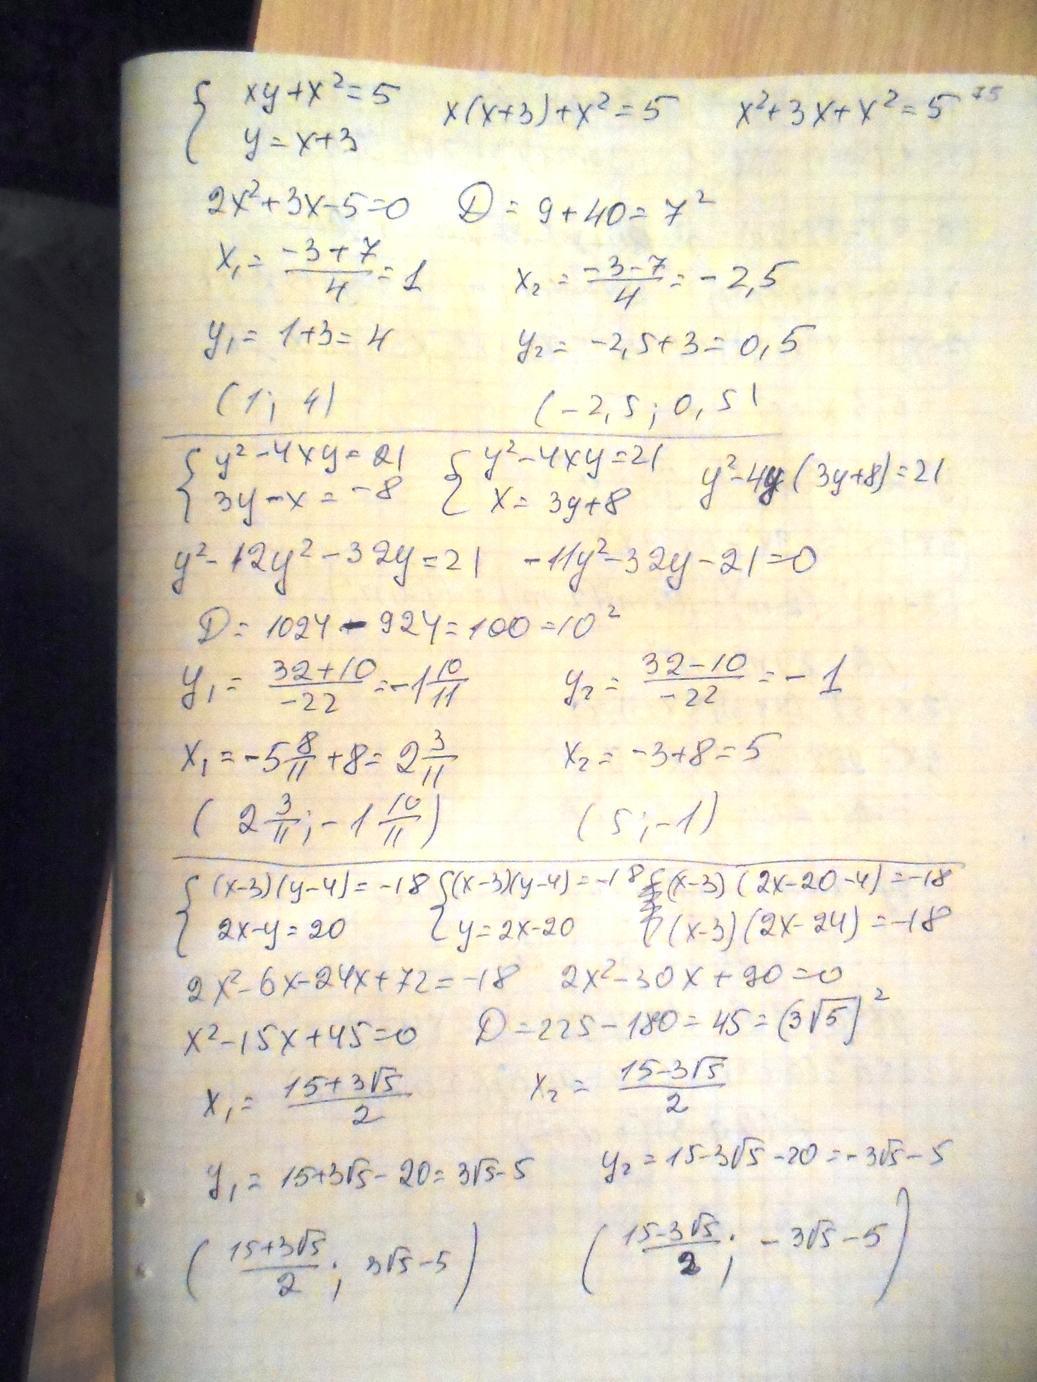 { xy+x²=5   x(x+3)+x²=5   x²+3x+x²=5
y=x+3
2x²+3x-5=0   D=9+40=7²
x₁=(-3+7)/4=1   x₂=(-3-7)/4=-2,5
y₁=1+3=4   y₂=-2,5+3=0,5
(1; 4)   (-2,5; 0,5)
{ y²-4xy=21   { y²-4xy=21   y²-4y(3y+8)=21
3y-x=-8   x=3y+8
y²-12y²-32y=21   -11y²-32y-21=0
D=1024-924=100=10²
y₁=(32+10)/-22=-1 10/11   y₂=(32-10)/-22=-1
x₁=-5 8/11+8=2 3/11   x₂=-3+8=5
(2 3/11; -1 10/11)   (5; -1)
{ (x-3)(y-4)=-18   { (x-3)(y-4)=-18   { (x-3)(2x-20-4)=-18
2x-y=20   y=2x-20   (x-3)(2x-24)=-18
2x²-6x-24x+72=-18   2x²-30x+90=0
x²-15x+45=0   D=225-180=45=(3√5)²
x₁=(15+3√5)/2   x₂=(15-3√5)/2
y₁=15+3√5-20=3√5-5   y₂=15-3√5-20=-3√5-5
((15+3√5)/2; 3√5-5)   ((15-3√5)/2; -3√5-5)